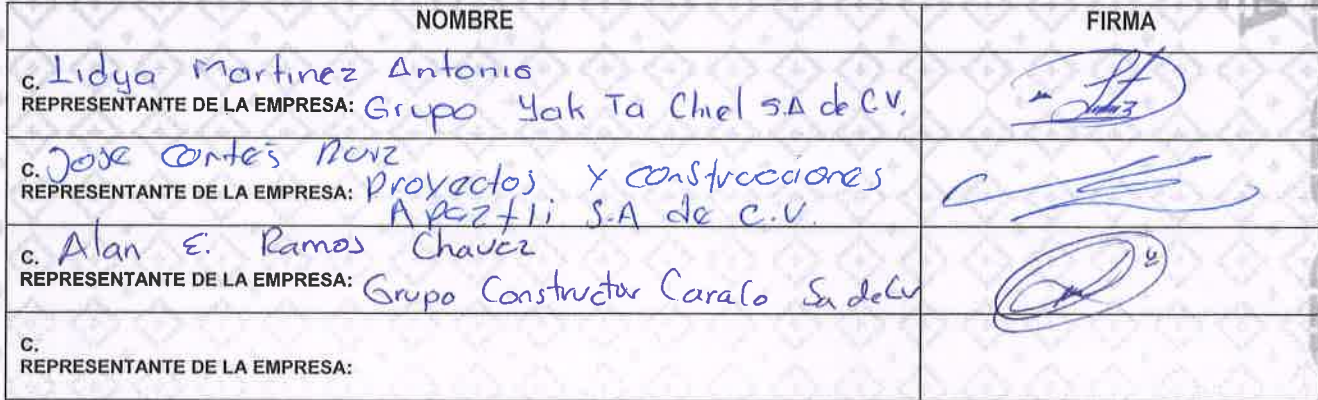 NOMBRE FIRMA
C. Lidya Martinez Antonio
REPRESENTANTE DE LA EMPRESA: Grupo Yak Ta Chiel S.A de C.V.
C. Jose Cortés
REPRESENTANTE DE LA EMPRESA: Proyectos y construcciones
Apaztli S.A de C.V.
C. Alan E. Ramos Chavez
REPRESENTANTE DE LA EMPRESA: Grupo Constructor Caralo Sa de Cv
C.
REPRESENTANTE DE LA EMPRESA: